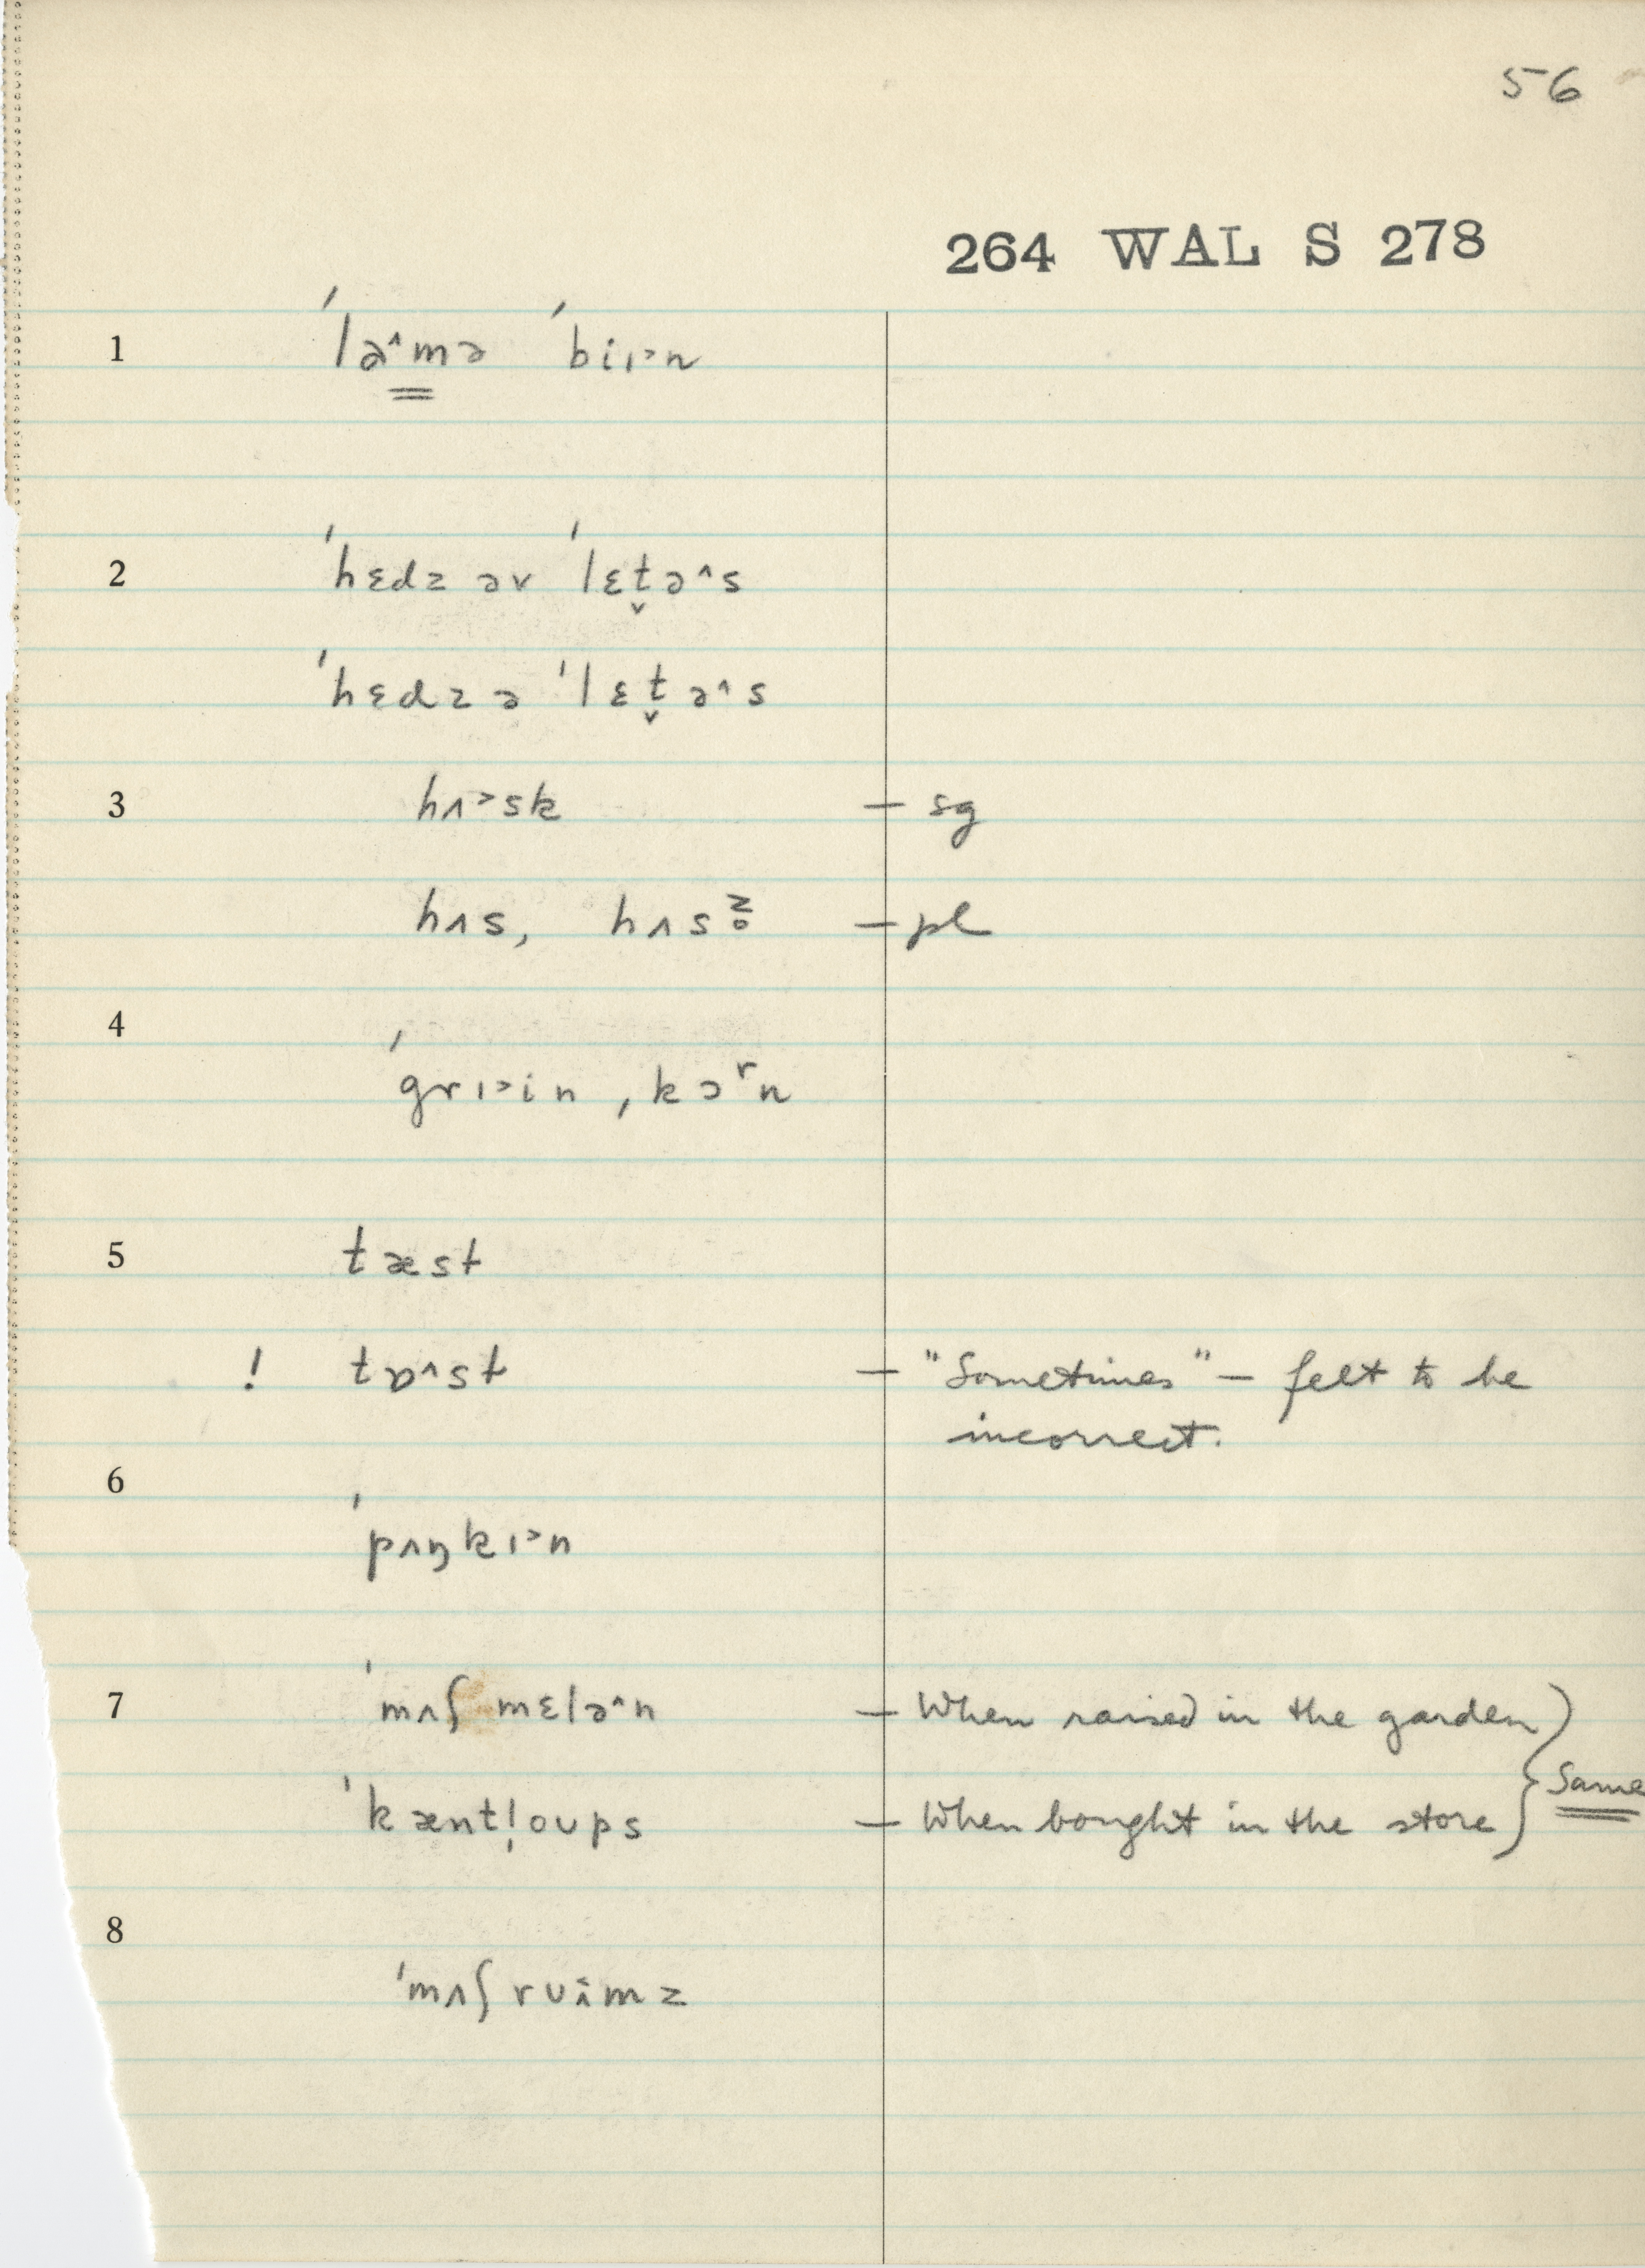 56
264 WAL S 278
1 ˈləˆmə ˈbiɪ˃n
2 ˈhɛdz əv ˈlɛt̬əˆs
ˈhɛdz ə ˈlɛt̬əˆs
3 hʌ˃sk — sg
hʌs, hʌsz̥ — pl
4
ˈgrɪ˃in, kɔʳn
5 tæst
! tɒˆst — "Sometimes" — felt to be
incorrect.
6
ˈpʌŋkɪ˃n
7 ˈmʌʃmɛləˆn — When raised in the garden
} Same
ˈkæntl̩oʊps — When bought in the store
8
ˈmʌʃrʊɨ̂mz